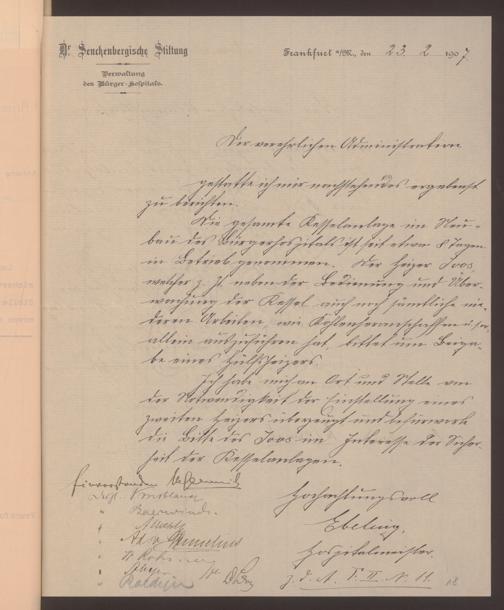 Dr Senckenbergische Stiftung
Verwaltung
des Bürger-Hospitals.
Frankfurt a/M., den 23. 2 1907.
Der verehrlichen Administration
gestatte ich mir nachstehendes ergebenst
zu berichten.
Die gesamte Kesselanlage im Neu-
bau des Bürgerhospitals ist seit etwa 8 Tagen
in Betrieb genommen. Der Heizer Joos,
welcher z. Zt. neben der Bedienung und Über-
wachung der Kessel auch noch sämtliche nie-
deren Arbeiten, wie Kohlenheranschaffen u.s.w.
allein auszuführen hat, bittet um Beiga-
be eines Hülfsheizers.
Ich habe mich an Ort und Stelle von
der Notwendigkeit der Einstellung eines
zweiten Heizers überzeugt und befürworte
die Bitte des Joos im Interesse der Sicher-
heit der Kesselanlagen.
Einverstanden
Hochachtungsvoll
Ebeling,
Hospitalmeister.
z. d. A. F. II. N. 11.